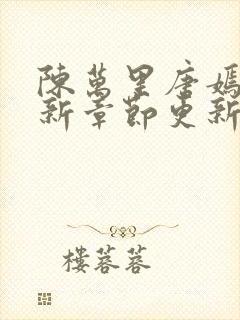 陳萬里唐嫣
新章節更新
樓蓉蓉